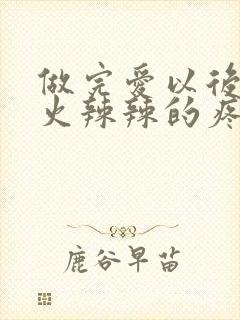 做完爱以後
火辣辣的疼
鹿谷早苗